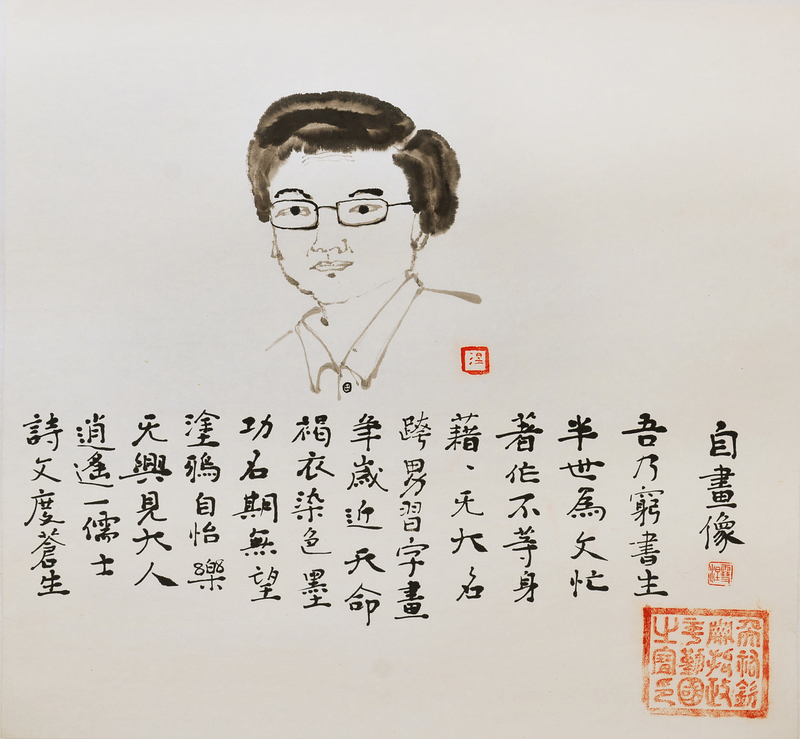 自畫像
吾乃窮書生
半世為文忙
著作不等身
藉、无大名
跨界習字畫
年歲近天命
褐衣染色墨
功名期無望
塗鴉自怡樂
无興見大人
逍遙一儒士
詩文度蒼生
涅